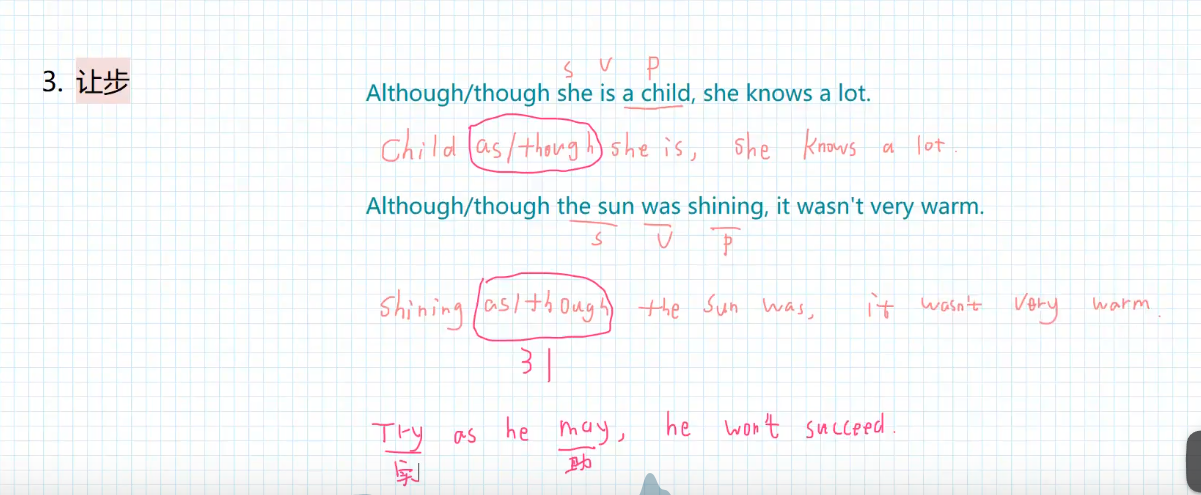 3. 让步
s v p
Although/though she is a child, she knows a lot.
Child as/though she is, she knows a lot.
Although/though the sun was shining, it wasn't very warm.
s v p
Shining as/though the sun was, it wasn't very warm.
Try as he may, he won't succeed.
实 助